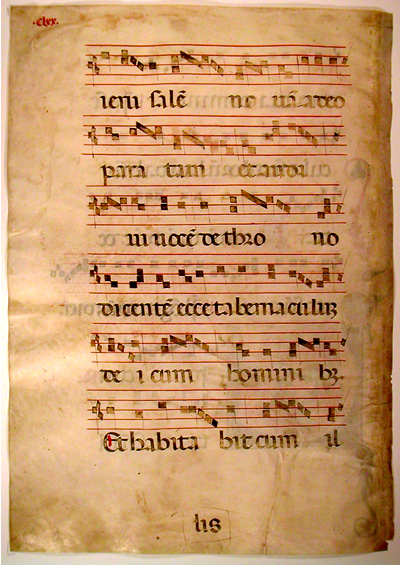 ·clxx·
ieru salē no uā a deo
para tam et audi
ui uocē de thro no
di centē ecce ta berna culūz
de i cum homini bz.
Et habita bit cum il
lis